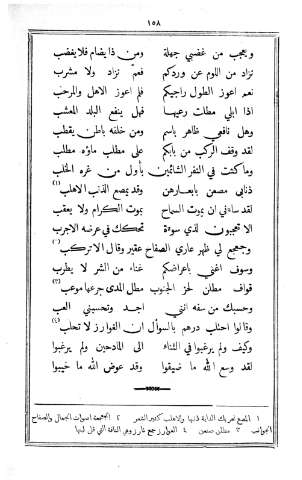 ١٥٨
ويعجب من غضبي جهلة ومن ذا يضام فلا يغضب
نزاد من اللوم عن وردكم فعمّ نزاد ولا مشرب
نعم اعوز الطول راجيكم فلم اعوز الاهل والمرحب
اذا ابلي مطلت رعيها فهل ينفع البلد المعشب
وهل نافعي ظاهر باسم ومن خلفه باطن يقطب
لقد وقف الركب من بابكم على مطلب ماؤه مطلب
وما كنت في النفر الشائمين بأول من غره الخلب
ذنابى مصعن بابعارهن وقد يمصع الذنب الاهلب (١)
لقد ساءني ان يموت السماح بموت الكرام ولا يعقب
الا تحجبون لذي سوءة تحكك في عرضه الاجرب
وجمجع لي ظهر عاري الصفاح عقير وقال الا تركب (٢)
وسوف اغني باعراضكم غناء من الشر لا يطرب
قواف مطلن لحز الجنوب مطل المدى جرعها موعب (٣)
وحسبك من سفه انني اجد وتحسبني العب
وقالوا احتلب درهم بالسؤال ان الغوارز لا تحلب (٤)
وكيف ولم يرغبوا في الثناء الى المادحين ولم يرغبوا
لقد وسع الله ما ضيقوا وقد عوض الله ما خيبوا
١ المصع تحريك الدابة ذنبها والاهلب كثير الشعر ٢ الجمجعة اصوات الجمال والصفاح
الجوانب ٣ مطلن صنعن ٤ الغوارز جمع غارز وهي الناقة التي قل لبنها